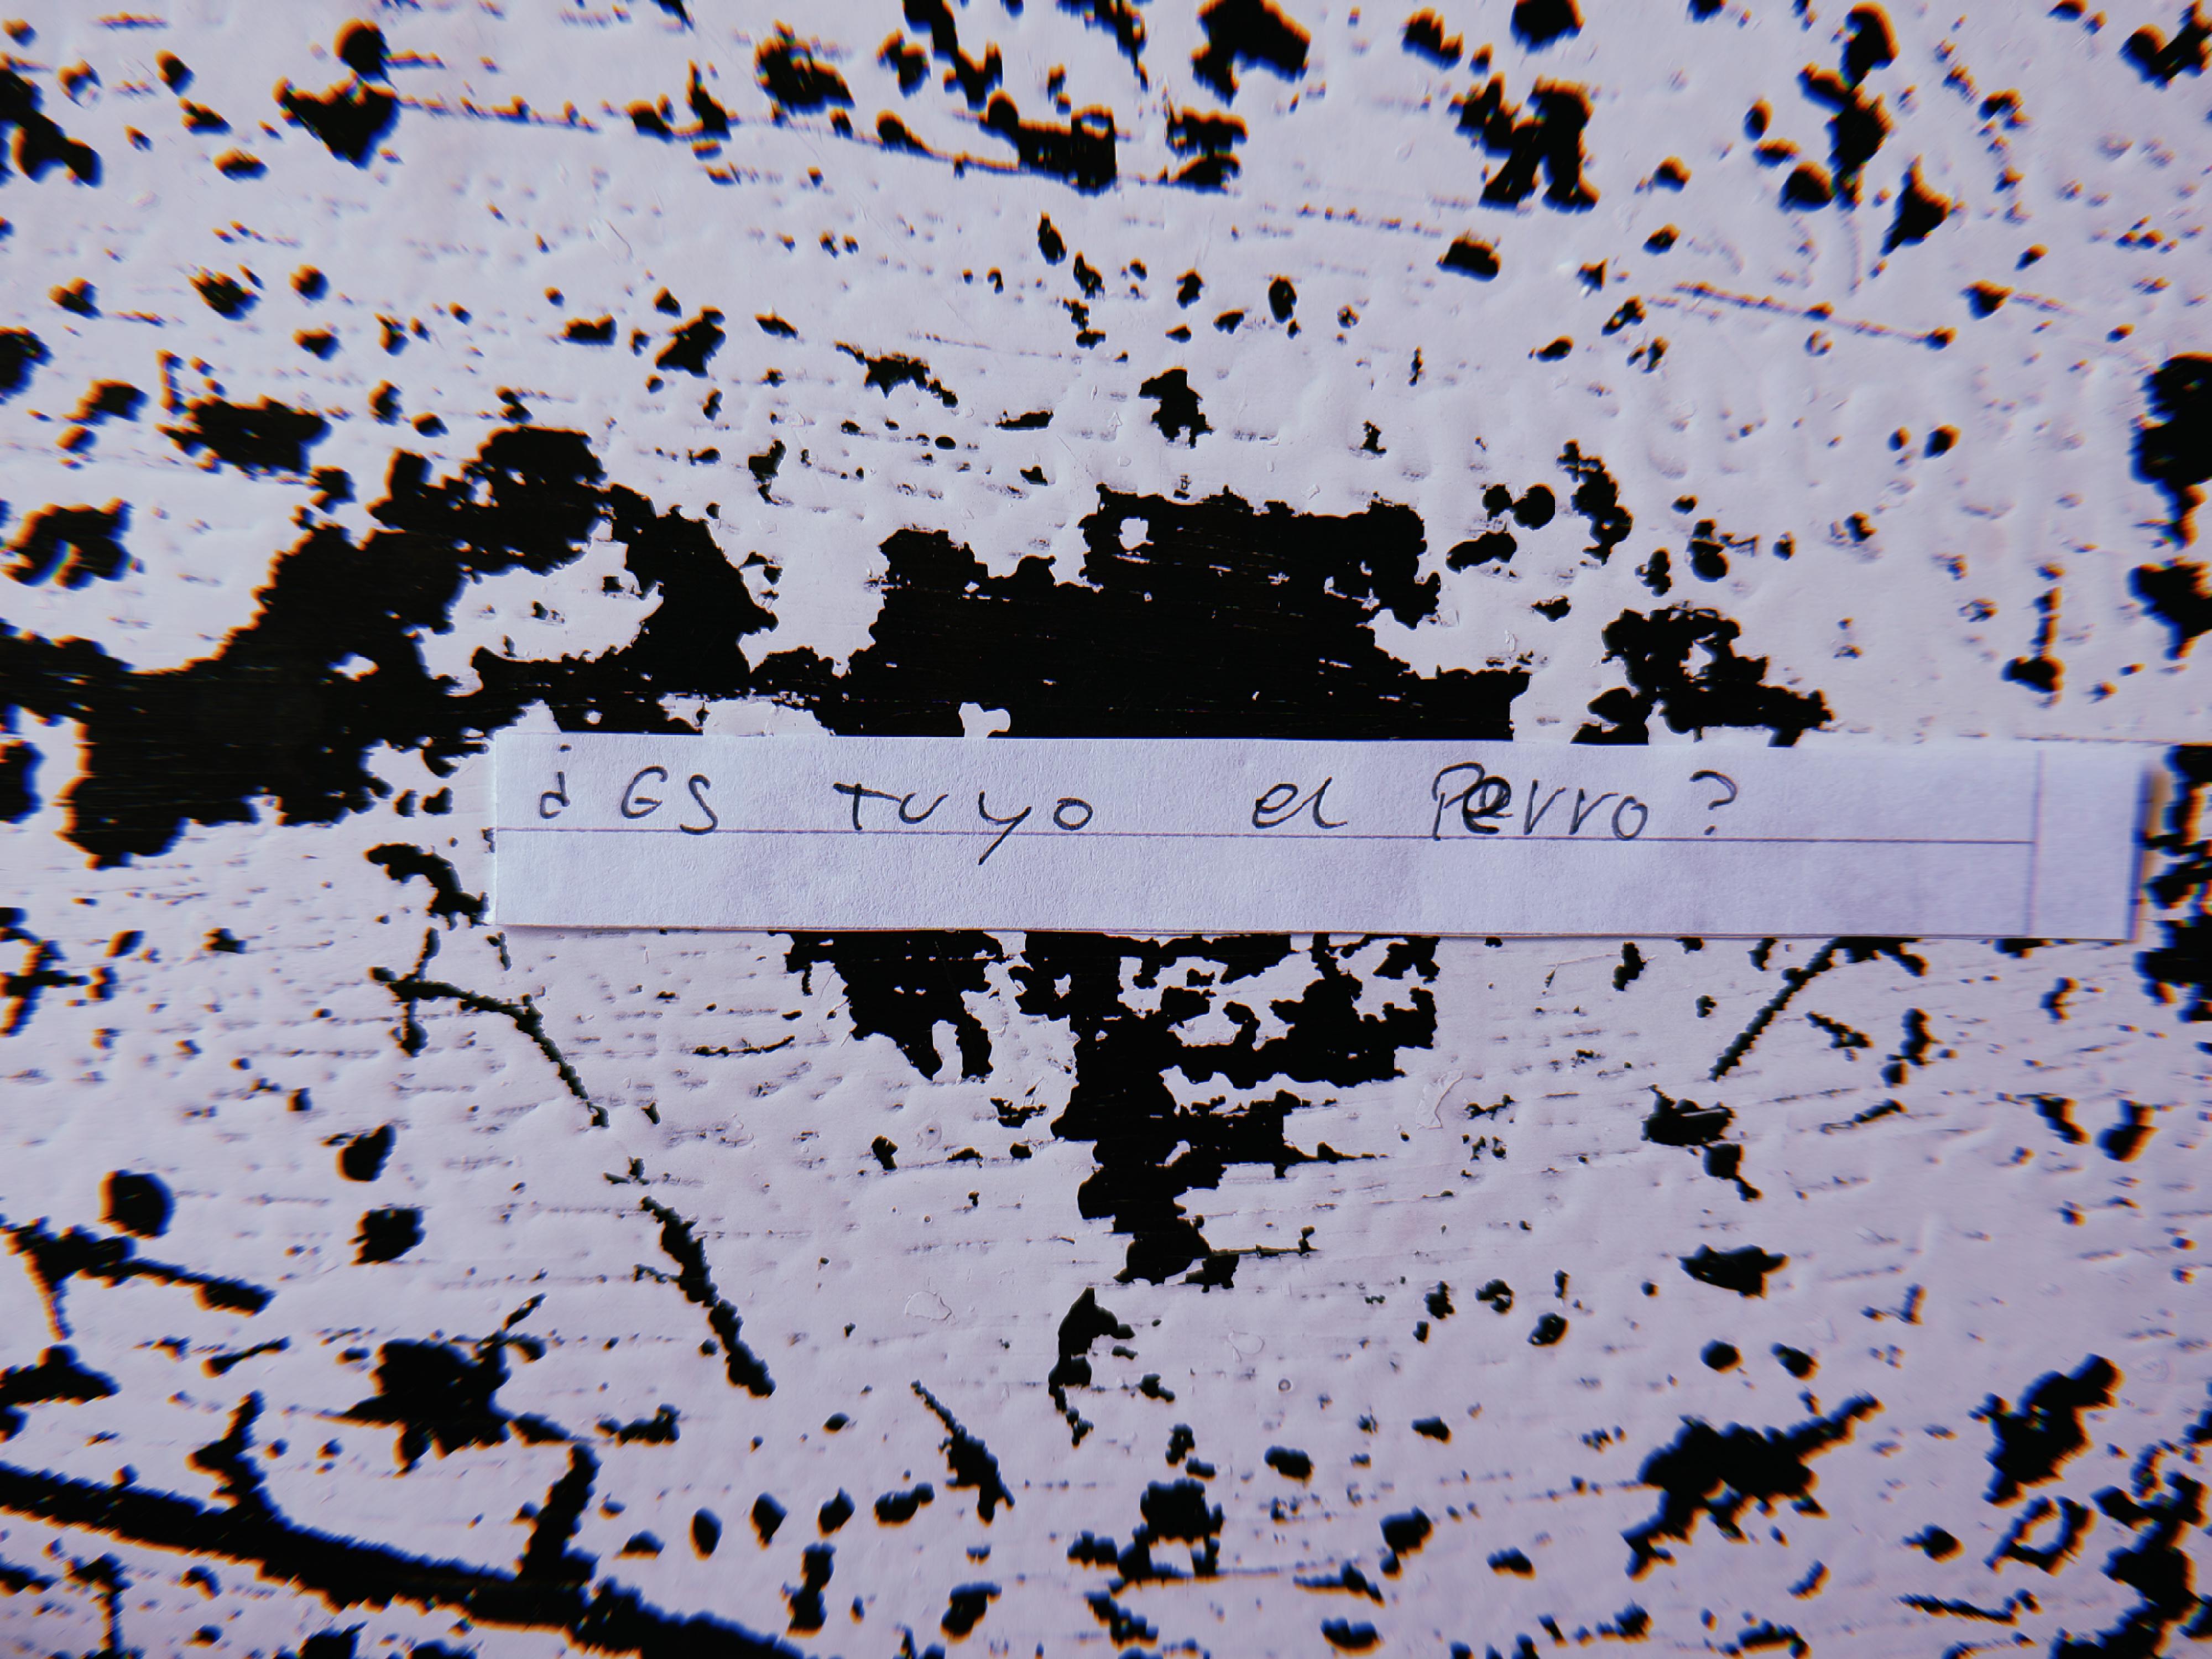 ¿Es tuyo el Perro?